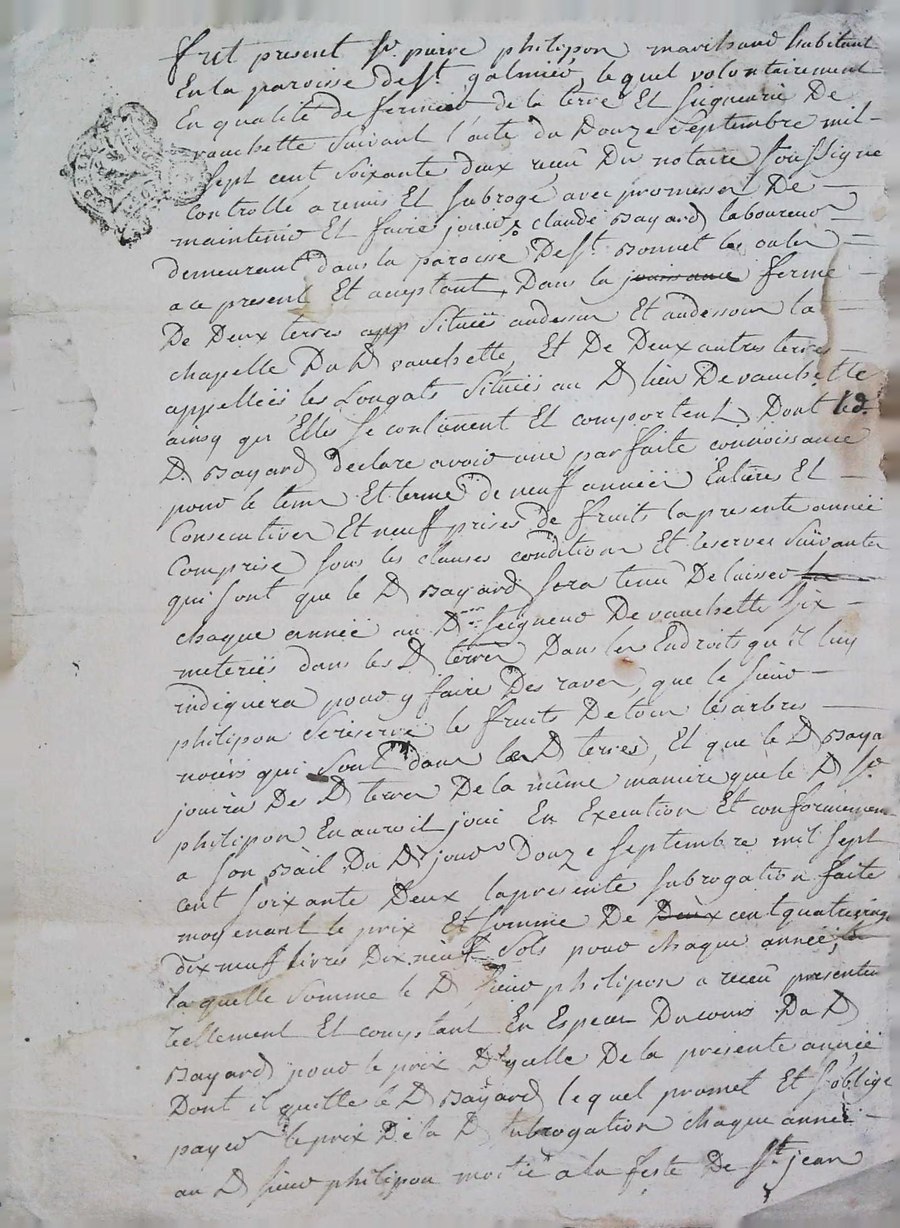 fut present Sr. pierre philipon marchand habitant
En la paroisse de St. galmier, lequel volontairement
En qualité de fermier de la terre Et Seigneurie De
vauchette Suivant l'acte du Douze Septembre mil
Sept cent Soixante deux receu Du notaire Soussigne
Controllé a remis Et Subrogé avec promesse De
maintenir Et faire jouir Claude Bayard laboureur
demeurant dans la paroisse De St. Bonnet les oules
a ce present Et aceptant, Dans la jouissance ferme
De Deux terres app Situéés audessus Et audessous la
chapelle Du D vauchette, Et De Deux autres terres
appelleés les Lougats Situéés au D lieu De vauchette
ainsy qu'Elles Se contiennent Et comportent Dont led.
D. Bayard declare avoir une parfaite connoissance
pour le tems Et terme de neuf annéés Entieres Et
Consecutives Et neuf prises de fruits la presente année
Comprise Sous les clauses conditions Et reserves Suivantes
qui Sont que le D Bayard Sera tenu De laisser
chaque année au D Seigneur De vauchette Six
meteriés dans les D terres Dans les Endroits qu'il luy
indiquera pour y faire Des raves, que le Sieur
philipon Se reserve les fruits De tous les arbres
noiers qui Sont dans les D terres, Et que le D Baya
jouira Des D terres De la même maniere que le D Sr.
philipon En auroit joui En Execution Et conformement
a Son Bail Du D jour Douze Septembre mil Sept
cent Soixante Deux la presente Subrogation faite
moyenant le prix Et Somme De Deux cent quatrevingt
dix neuf livres Dix neuf Sols pour chaque année,
la quelle Somme le D Sieur philipon a receu presentem
reellement Et comptant En Especes Du cours Du D
Bayard pour le prix D'ycelle De la presente année
Dont il quitte le D Bayard lequel promet Et S'oblige
payer le prix De la D Subrogation chaque année
au D Sieur philipon moctié a la feste De St. jean